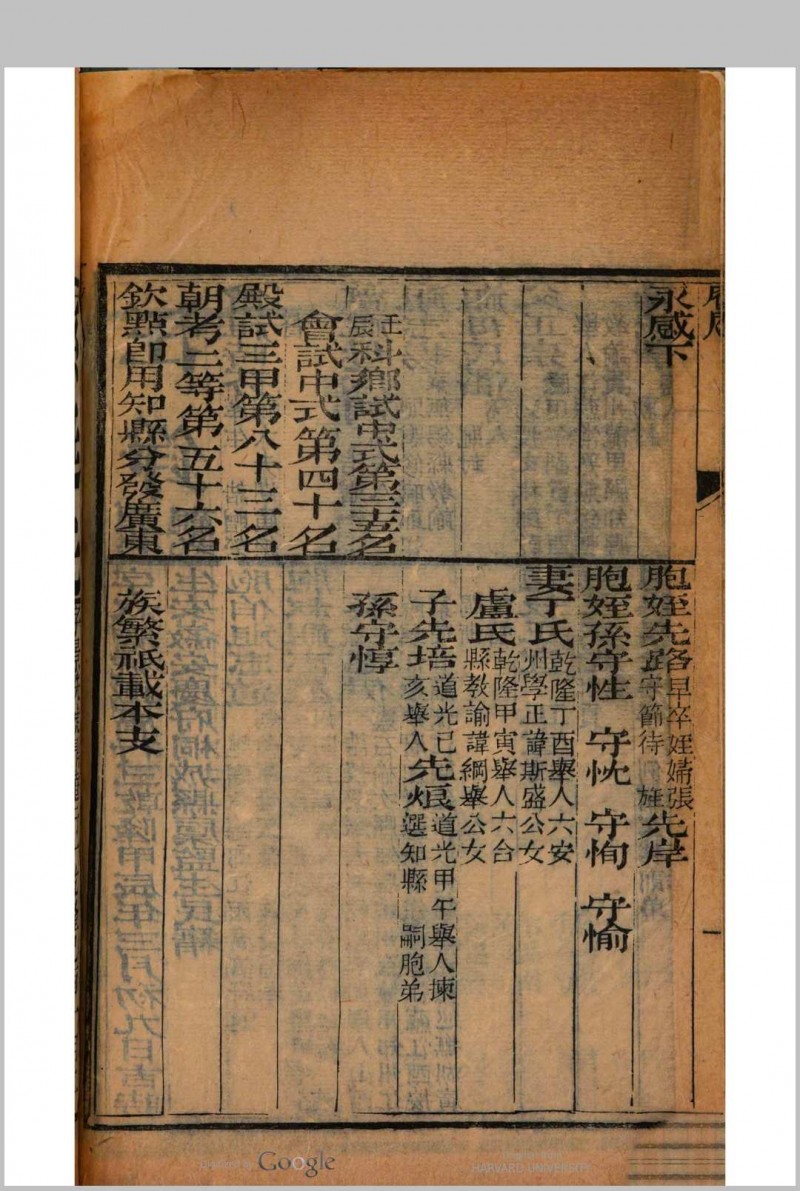 永感下
壬辰科鄉試中式第三十五名
會試中式第四十名
殿試三甲第八十三名
朝考二等第五十六名
欽點即用知縣分發廣東
胞姪先路早卒姪婦張守節待旌先岸
胞姪孫守性 守忱 守恂 守愉
妻丁氏乾隆丁酉舉人六安州學正諱斯盛公女
盧氏乾隆甲寅舉人六合縣教諭諱綱舉公女
子先培道光己亥舉人先烺道光甲午舉人揀選知縣 嗣胞弟
孫守惇
族繁祇載本支
一
Digitized by Google
HARVARD UNIVERSITY